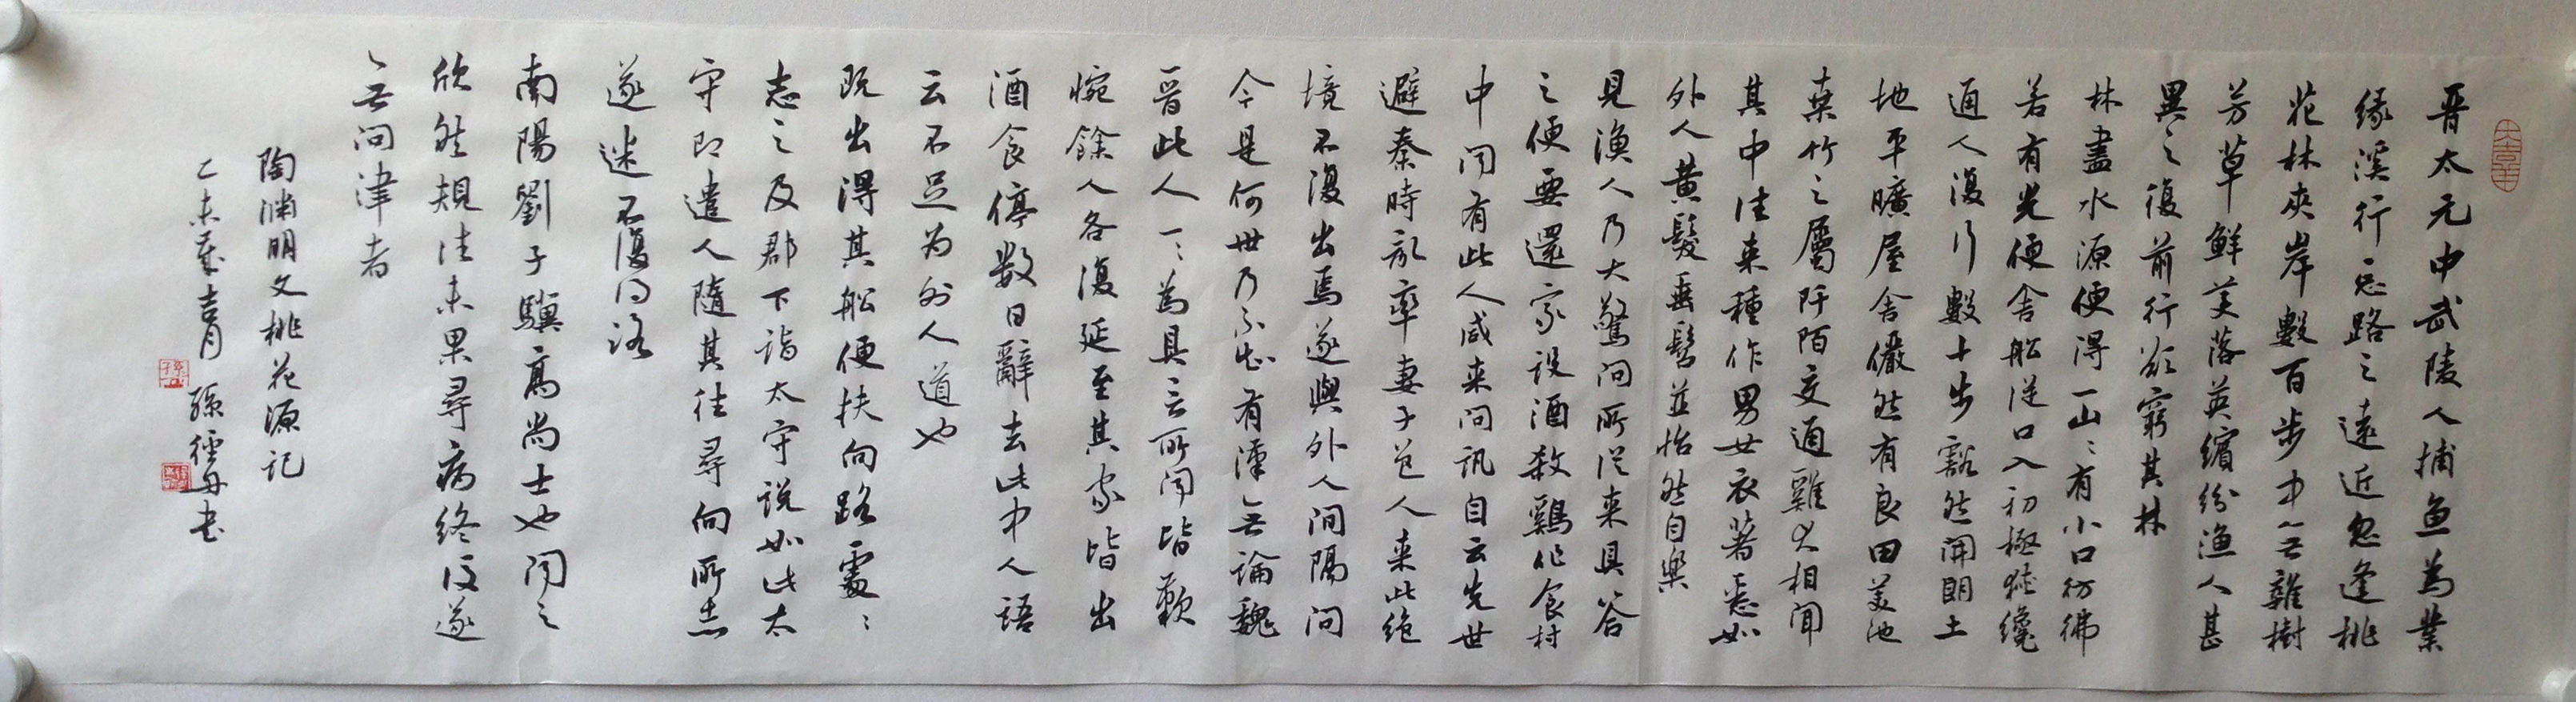 晋太元中武陵人捕魚為業
緣溪行忘路之遠近忽逢桃
花林夾岸數百步中無雜樹
芳草鮮美落英繽紛漁人甚
異之復前行欲窮其林
林盡水源便得一山〻有小口彷彿
若有光便舍船從口入初極狹纔
通人復行數十步豁然開朗土
地平曠屋舍儼然有良田美池
桑竹之屬阡陌交通雞犬相聞
其中往来種作男女衣著悉如
外人黄髮垂髫並怡然自樂
見漁人乃大驚问所從来具答
之便要還家設酒殺鷄作食村
中闻有此人咸来问訊自云先世
避秦時亂率妻子邑人来此绝
境不復出焉遂與外人间隔问
今是何世乃不知有漢無論魏
晉此人一〻為具言所闻皆歎
惋餘人各復延至其家皆出
酒食停数日辭去此中人語
云不足为外人道也
既出得其船便扶向路處〻
志之及郡下詣太守説如此太
守即遣人隨其往尋向所志
遂迷不復得路
南陽劉子驥高尚士也闻之
欣然規往未果尋病终後遂
無问津者
陶渊明文桃花源记
乙未歲吉月 孫經丹书